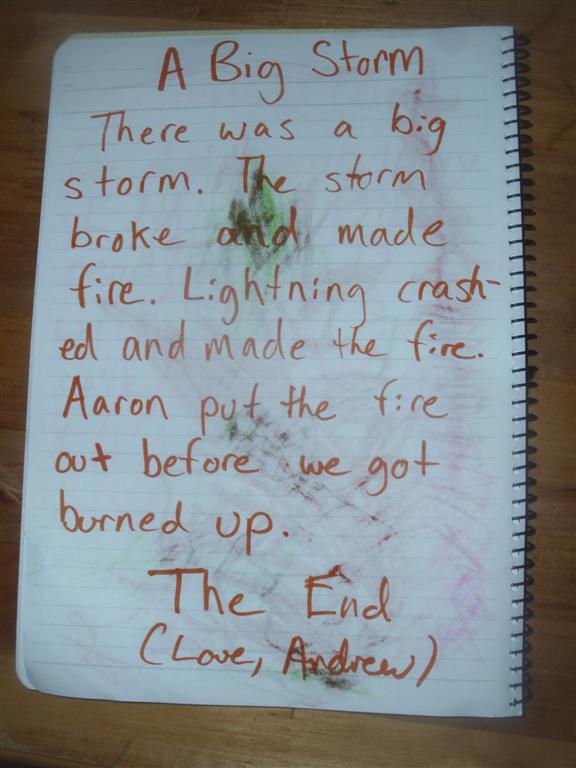 A Big Storm
There was a big
storm. The storm
broke and made
fire. Lightning crash-
ed and made the fire.
Aaron put the fire
out before we got
burned up.
The End
(Love, Andrew)